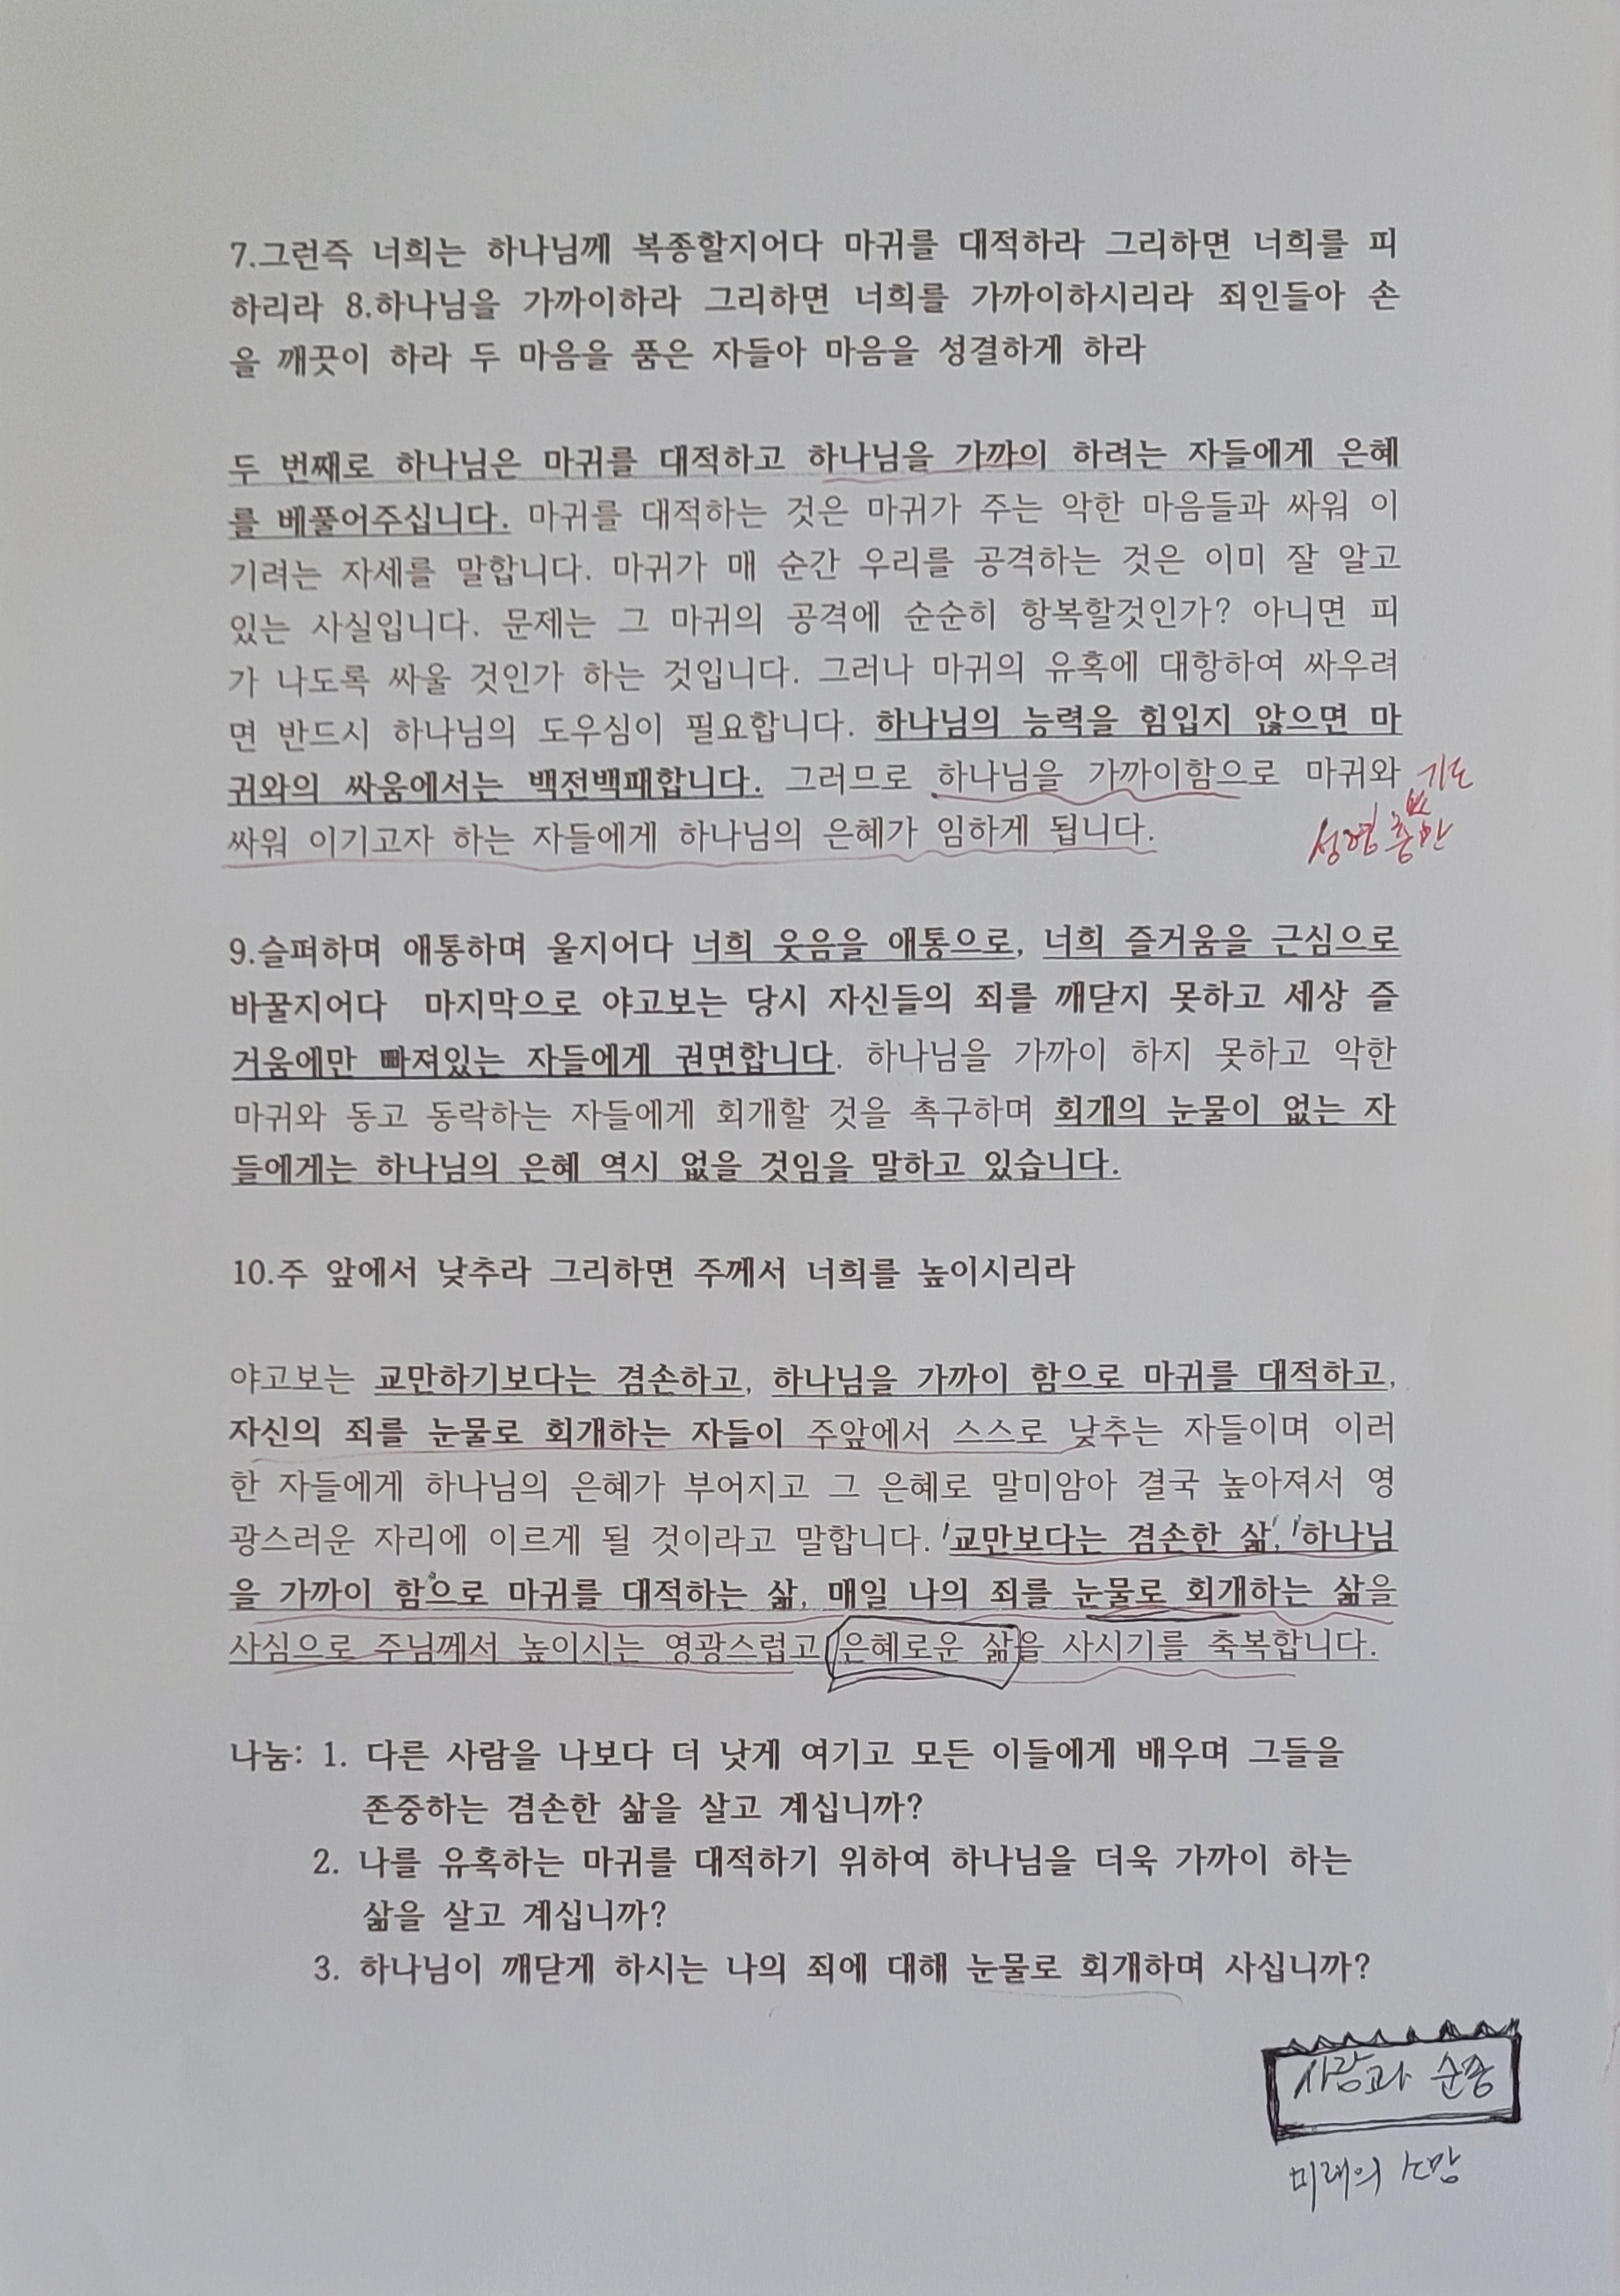 7.그런즉 너희는 하나님께 복종할지어다 마귀를 대적하라 그리하면 너희를 피
하리라 8.하나님을 가까이하라 그리하면 너희를 가까이하시리라 죄인들아 손
을 깨끗이 하라 두 마음을 품은 자들아 마음을 성결하게 하라
두 번째로 하나님은 마귀를 대적하고 하나님을 가까이 하려는 자들에게 은혜
를 베풀어주십니다. 마귀를 대적하는 것은 마귀가 주는 악한 마음들과 싸워 이
기려는 자세를 말합니다. 마귀가 매 순간 우리를 공격하는 것은 이미 잘 알고
있는 사실입니다. 문제는 그 마귀의 공격에 순순히 항복할것인가? 아니면 피
가 나도록 싸울 것인가 하는 것입니다. 그러나 마귀의 유혹에 대항하여 싸우려
면 반드시 하나님의 도우심이 필요합니다. 하나님의 능력을 힘입지 않으면 마
귀와의 싸움에서는 백전백패합니다. 그러므로 하나님을 가까이함으로 마귀와
기도
싸워 이기고자 하는 자들에게 하나님의 은혜가 임하게 됩니다.
성령 충만
9.슬퍼하며 애통하며 울지어다 너희 웃음을 애통으로, 너희 즐거움을 근심으로
바꿀지어다 마지막으로 야고보는 당시 자신들의 죄를 깨닫지 못하고 세상 즐
거움에만 빠져있는 자들에게 권면합니다. 하나님을 가까이 하지 못하고 악한
마귀와 동고 동락하는 자들에게 회개할 것을 촉구하며 회개의 눈물이 없는 자
들에게는 하나님의 은혜 역시 없을 것임을 말하고 있습니다.
10.주 앞에서 낮추라 그리하면 주께서 너희를 높이시리라
야고보는 교만하기보다는 겸손하고, 하나님을 가까이 함으로 마귀를 대적하고,
자신의 죄를 눈물로 회개하는 자들이 주앞에서 스스로 낮추는 자들이며 이러
한 자들에게 하나님의 은혜가 부어지고 그 은혜로 말미암아 결국 높아져서 영
광스러운 자리에 이르게 될 것이라고 말합니다. '교만보다는 겸손한 삶', '하나님
을 가까이 함으로 마귀를 대적하는 삶, 매일 나의 죄를 눈물로 회개하는 삶을
사심으로 주님께서 높이시는 영광스럽고 은혜로운 삶을 사시기를 축복합니다.
나눔: 1. 다른 사람을 나보다 더 낫게 여기고 모든 이들에게 배우며 그들을
존중하는 겸손한 삶을 살고 계십니까?
2. 나를 유혹하는 마귀를 대적하기 위하여 하나님을 더욱 가까이 하는
삶을 살고 계십니까?
3. 하나님이 깨닫게 하시는 나의 죄에 대해 눈물로 회개하며 사십니까?
사랑과 순종
미래의 소망